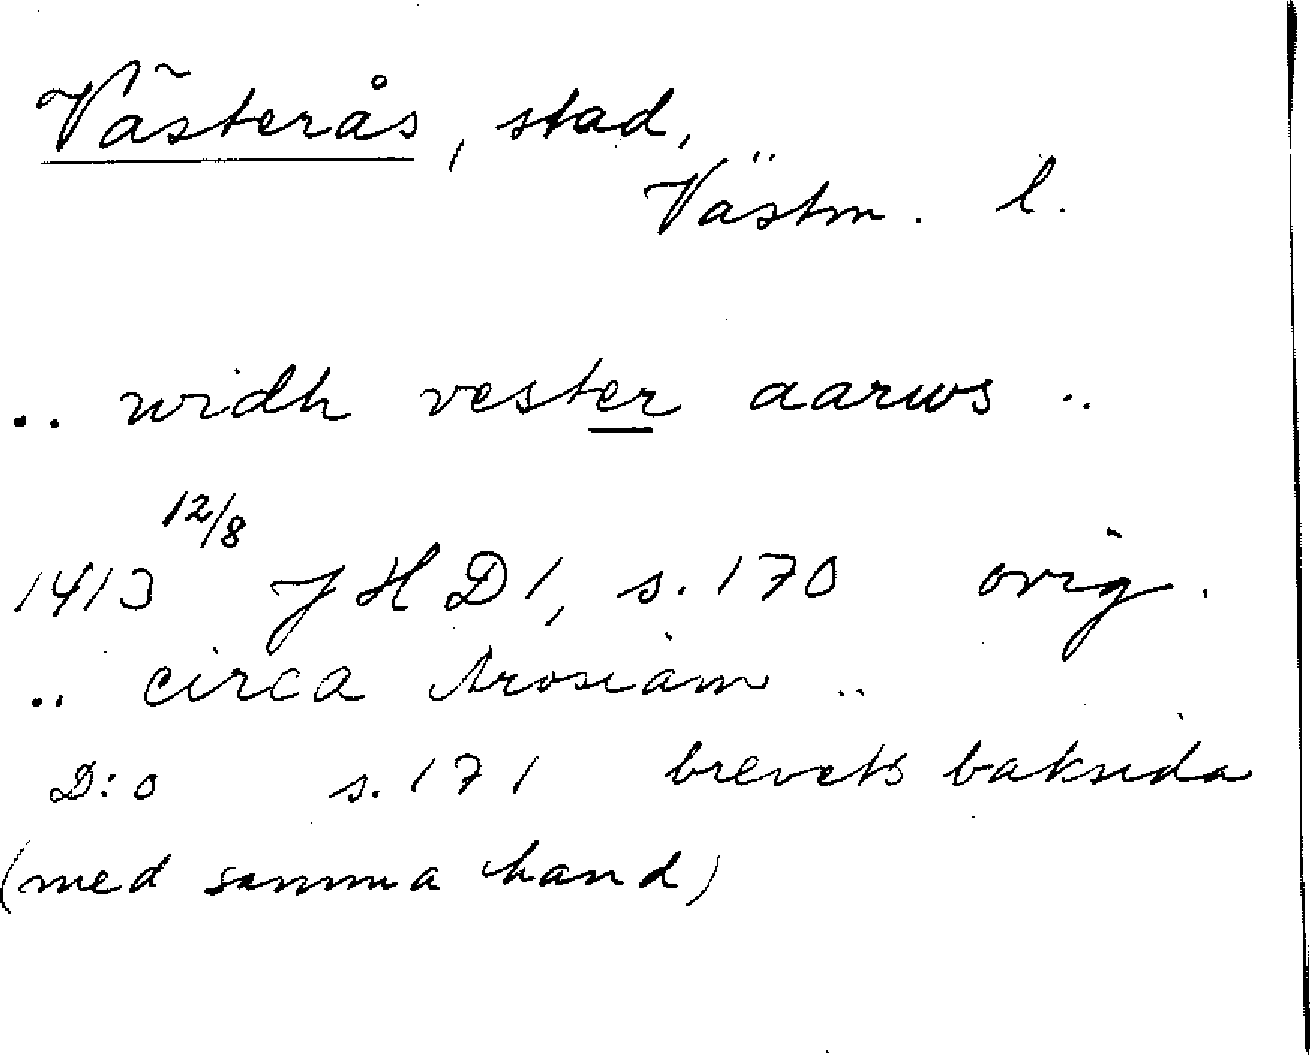 Västerås, stad,
Västm. l.
.. widh vester aarws ..
1413 12/8 JHD 1, s. 170 orig.
.. circa Arosiam ..
D:o s. 171 brevets baksida
(med samma hand)